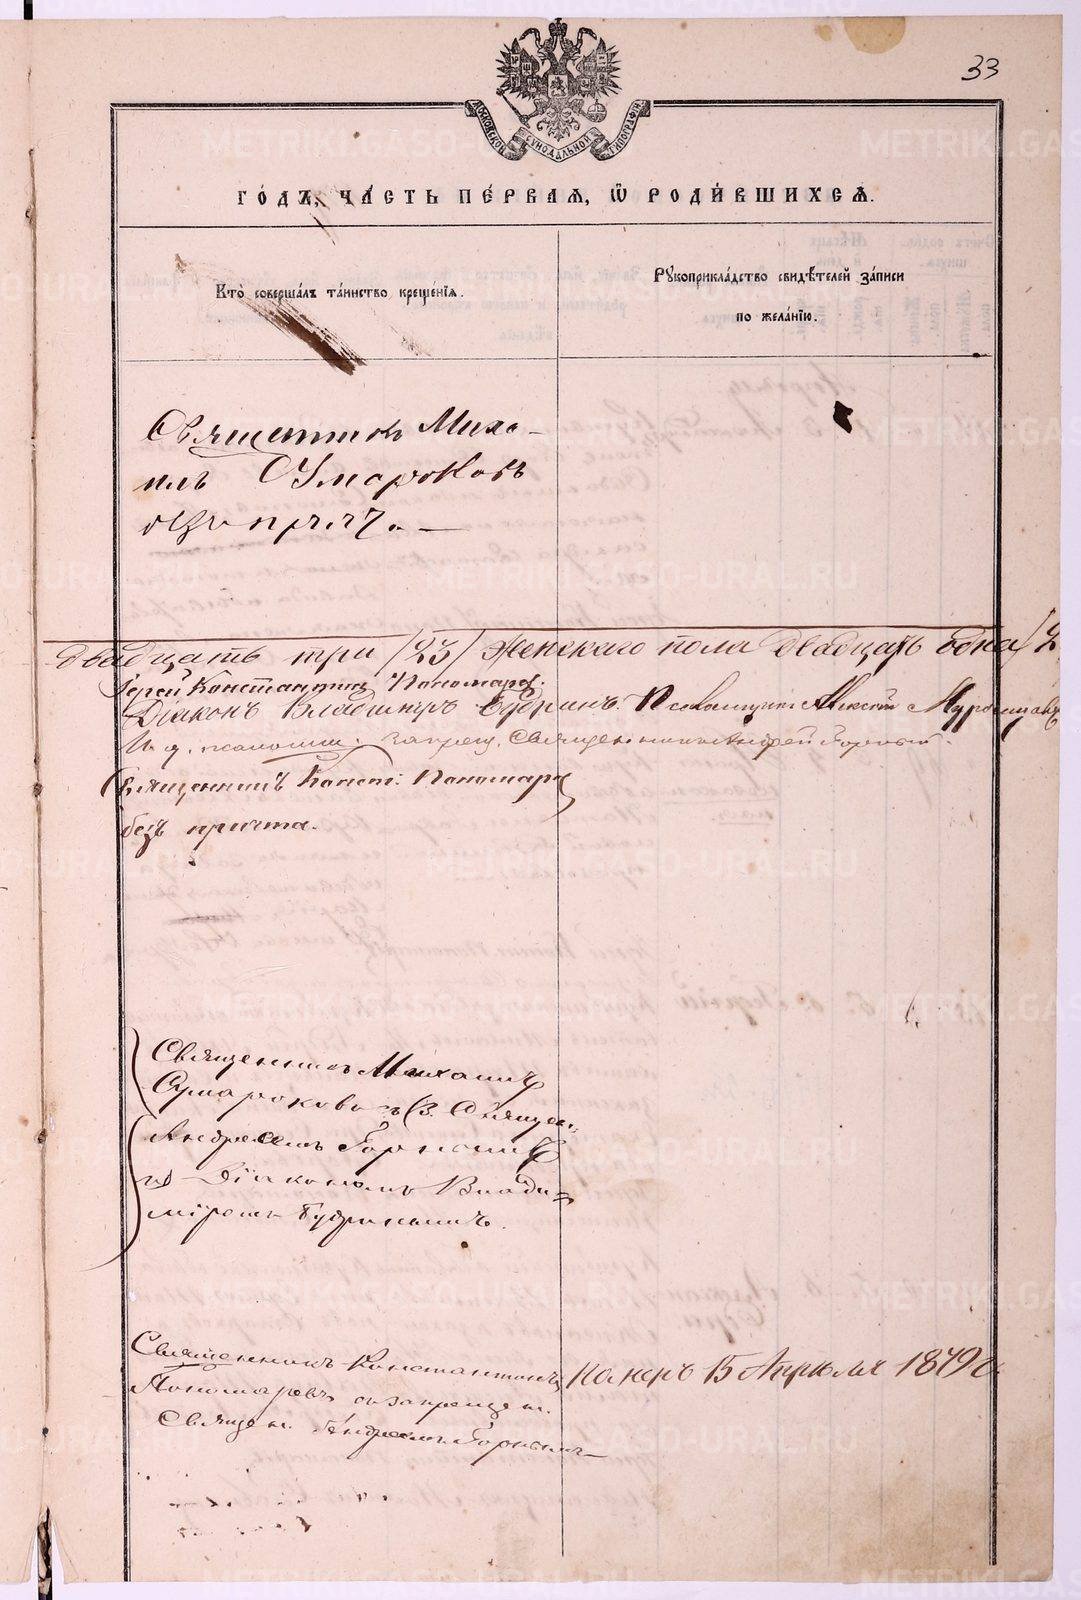 33
МОСКОВСКОЙ СѴНОДАЛЬНОЙ ТИПОГРАФІИ
ГО́ДЪ, ЧА́СТЬ ПЕ́РВАЯ, Ѿ РОДИ́ВШИХСЯ.
Кто̀ соверша́лъ та́инство креще́нія.
Рꙋкоприкла́дство свидѣ́телей за́писи
по жела́нію.
Священникъ Миха-
илъ Сумароковъ
безъ причта.
двадцать три /23/ Женскаго пола двадцать одна /2
Іерей Константинъ Пономаревъ.
Діаконъ Владиміръ Будринъ. Псаломщикъ Алексій
И. д. псаломщ. запрещ. Священникъ Андрей Горный.
Священникъ Конст. Пономаревъ
безъ причта.
Священникъ Михаилъ
Сумароковъ съ З. Священ.
Андреемъ Горнымъ
и Діакономъ Влади-
міромъ Будринымъ.
Священникъ Константинъ
Померъ 15 Апрѣля 1879 г.
Пономаревъ съ запрещен.
Священ. Андреемъ Горнымъ
METRIKI.GASO-URAL.RU